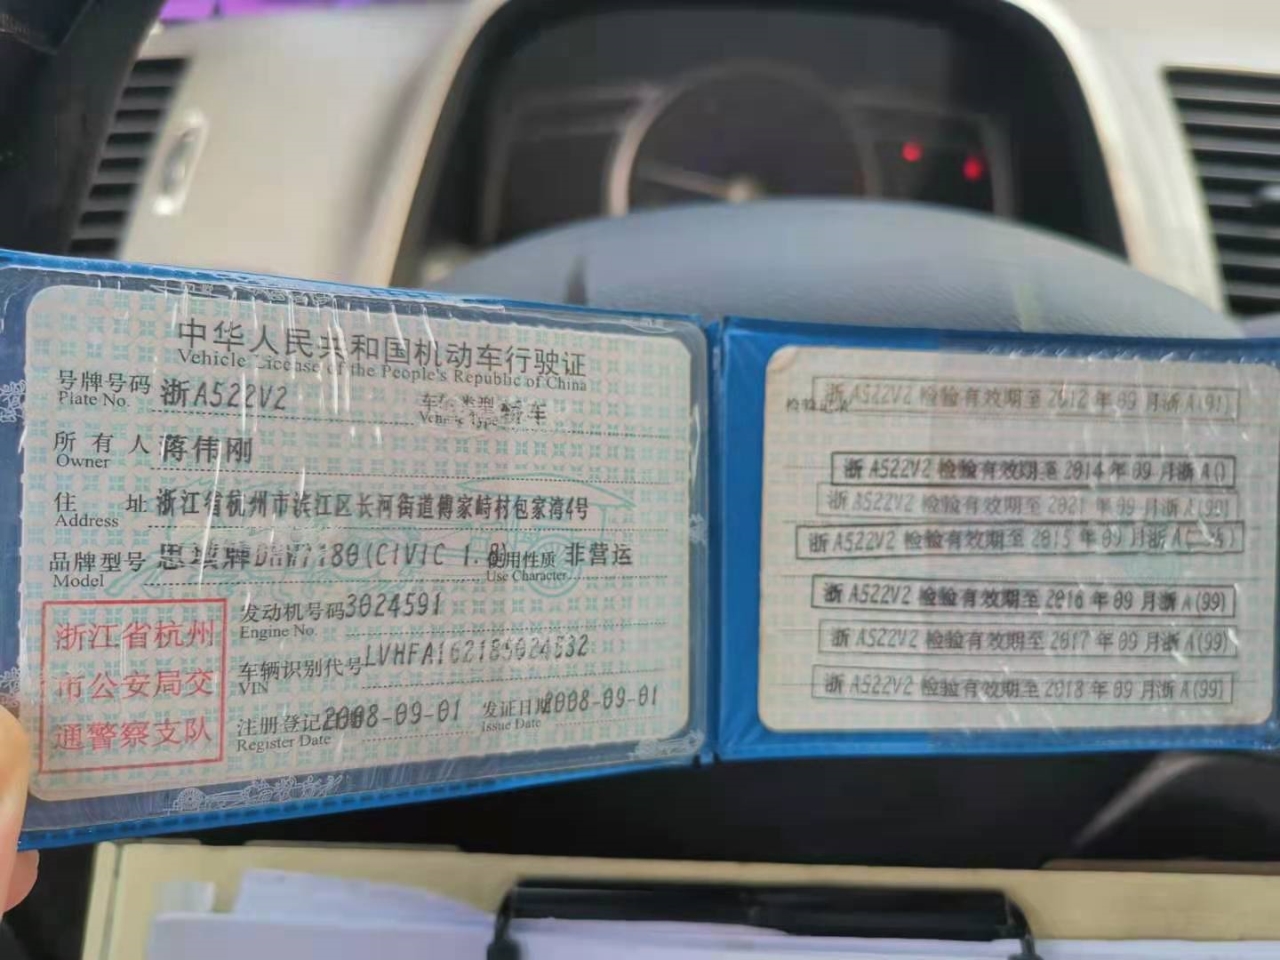 中华人民共和国机动车行驶证
Vehicle License of the People's Republic of China
号牌号码 浙A522V2 车辆类型 轿车
Plate No. Vehicle Type
所有人 蒋伟刚
Owner
住址 浙江省杭州市滨江区长河街道傅家峙村包家湾4号
Address
品牌型号 思域牌DHW7180(CIVIC 1.8) 使用性质 非营运
Model Use Character
发动机号码 3024591
Engine No.
车辆识别代号
VIN
注册登记 2008-09-01 发证日期 2008-09-01
Register Date Issue Date
浙江省杭州
市公安局交
通警察支队
检验记录
浙A522V2 检验有效期至2012年09月浙A(91)
浙A522V2 检验有效期至2014年09月浙A()
浙A522V2 检验有效期至2021年09月浙A(99)
浙A522V2 检验有效期至2015年09月浙A
浙A522V2 检验有效期至2016年09月浙A(99)
浙A522V2 检验有效期至2017年09月浙A(99)
浙A522V2 检验有效期至2018年09月浙A(99)